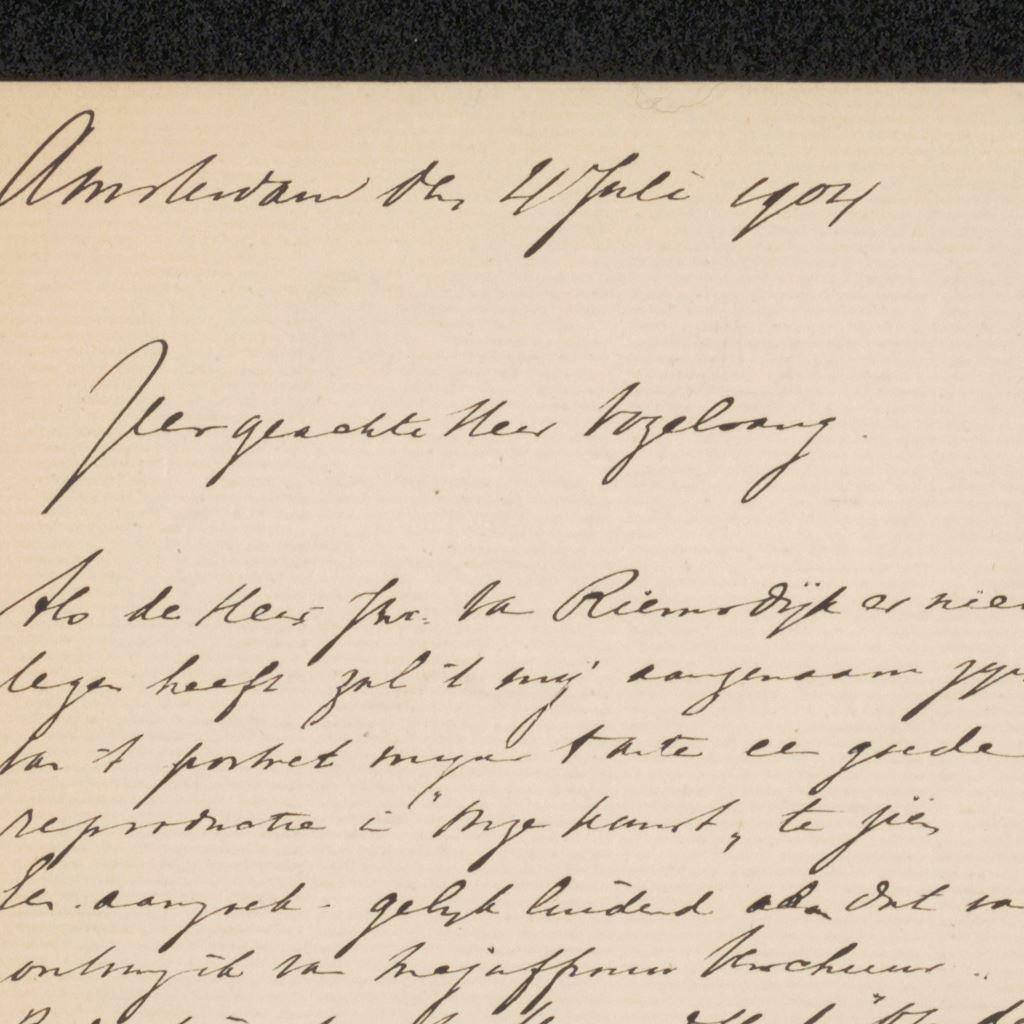 Amsterdam den 4 Juli 1904
Zeer geachte Heer Vogelsang.
Als de Heer Jhr. van Riemsdÿk er nie
tegen heeft zal 't mij aangenaam zyn
van 't portret myner tante een goede
reproductie in "Onze kunst„ te zien
Een aanzoek gelyk luidend aan dat va
ontving ik van Mejuffrouw